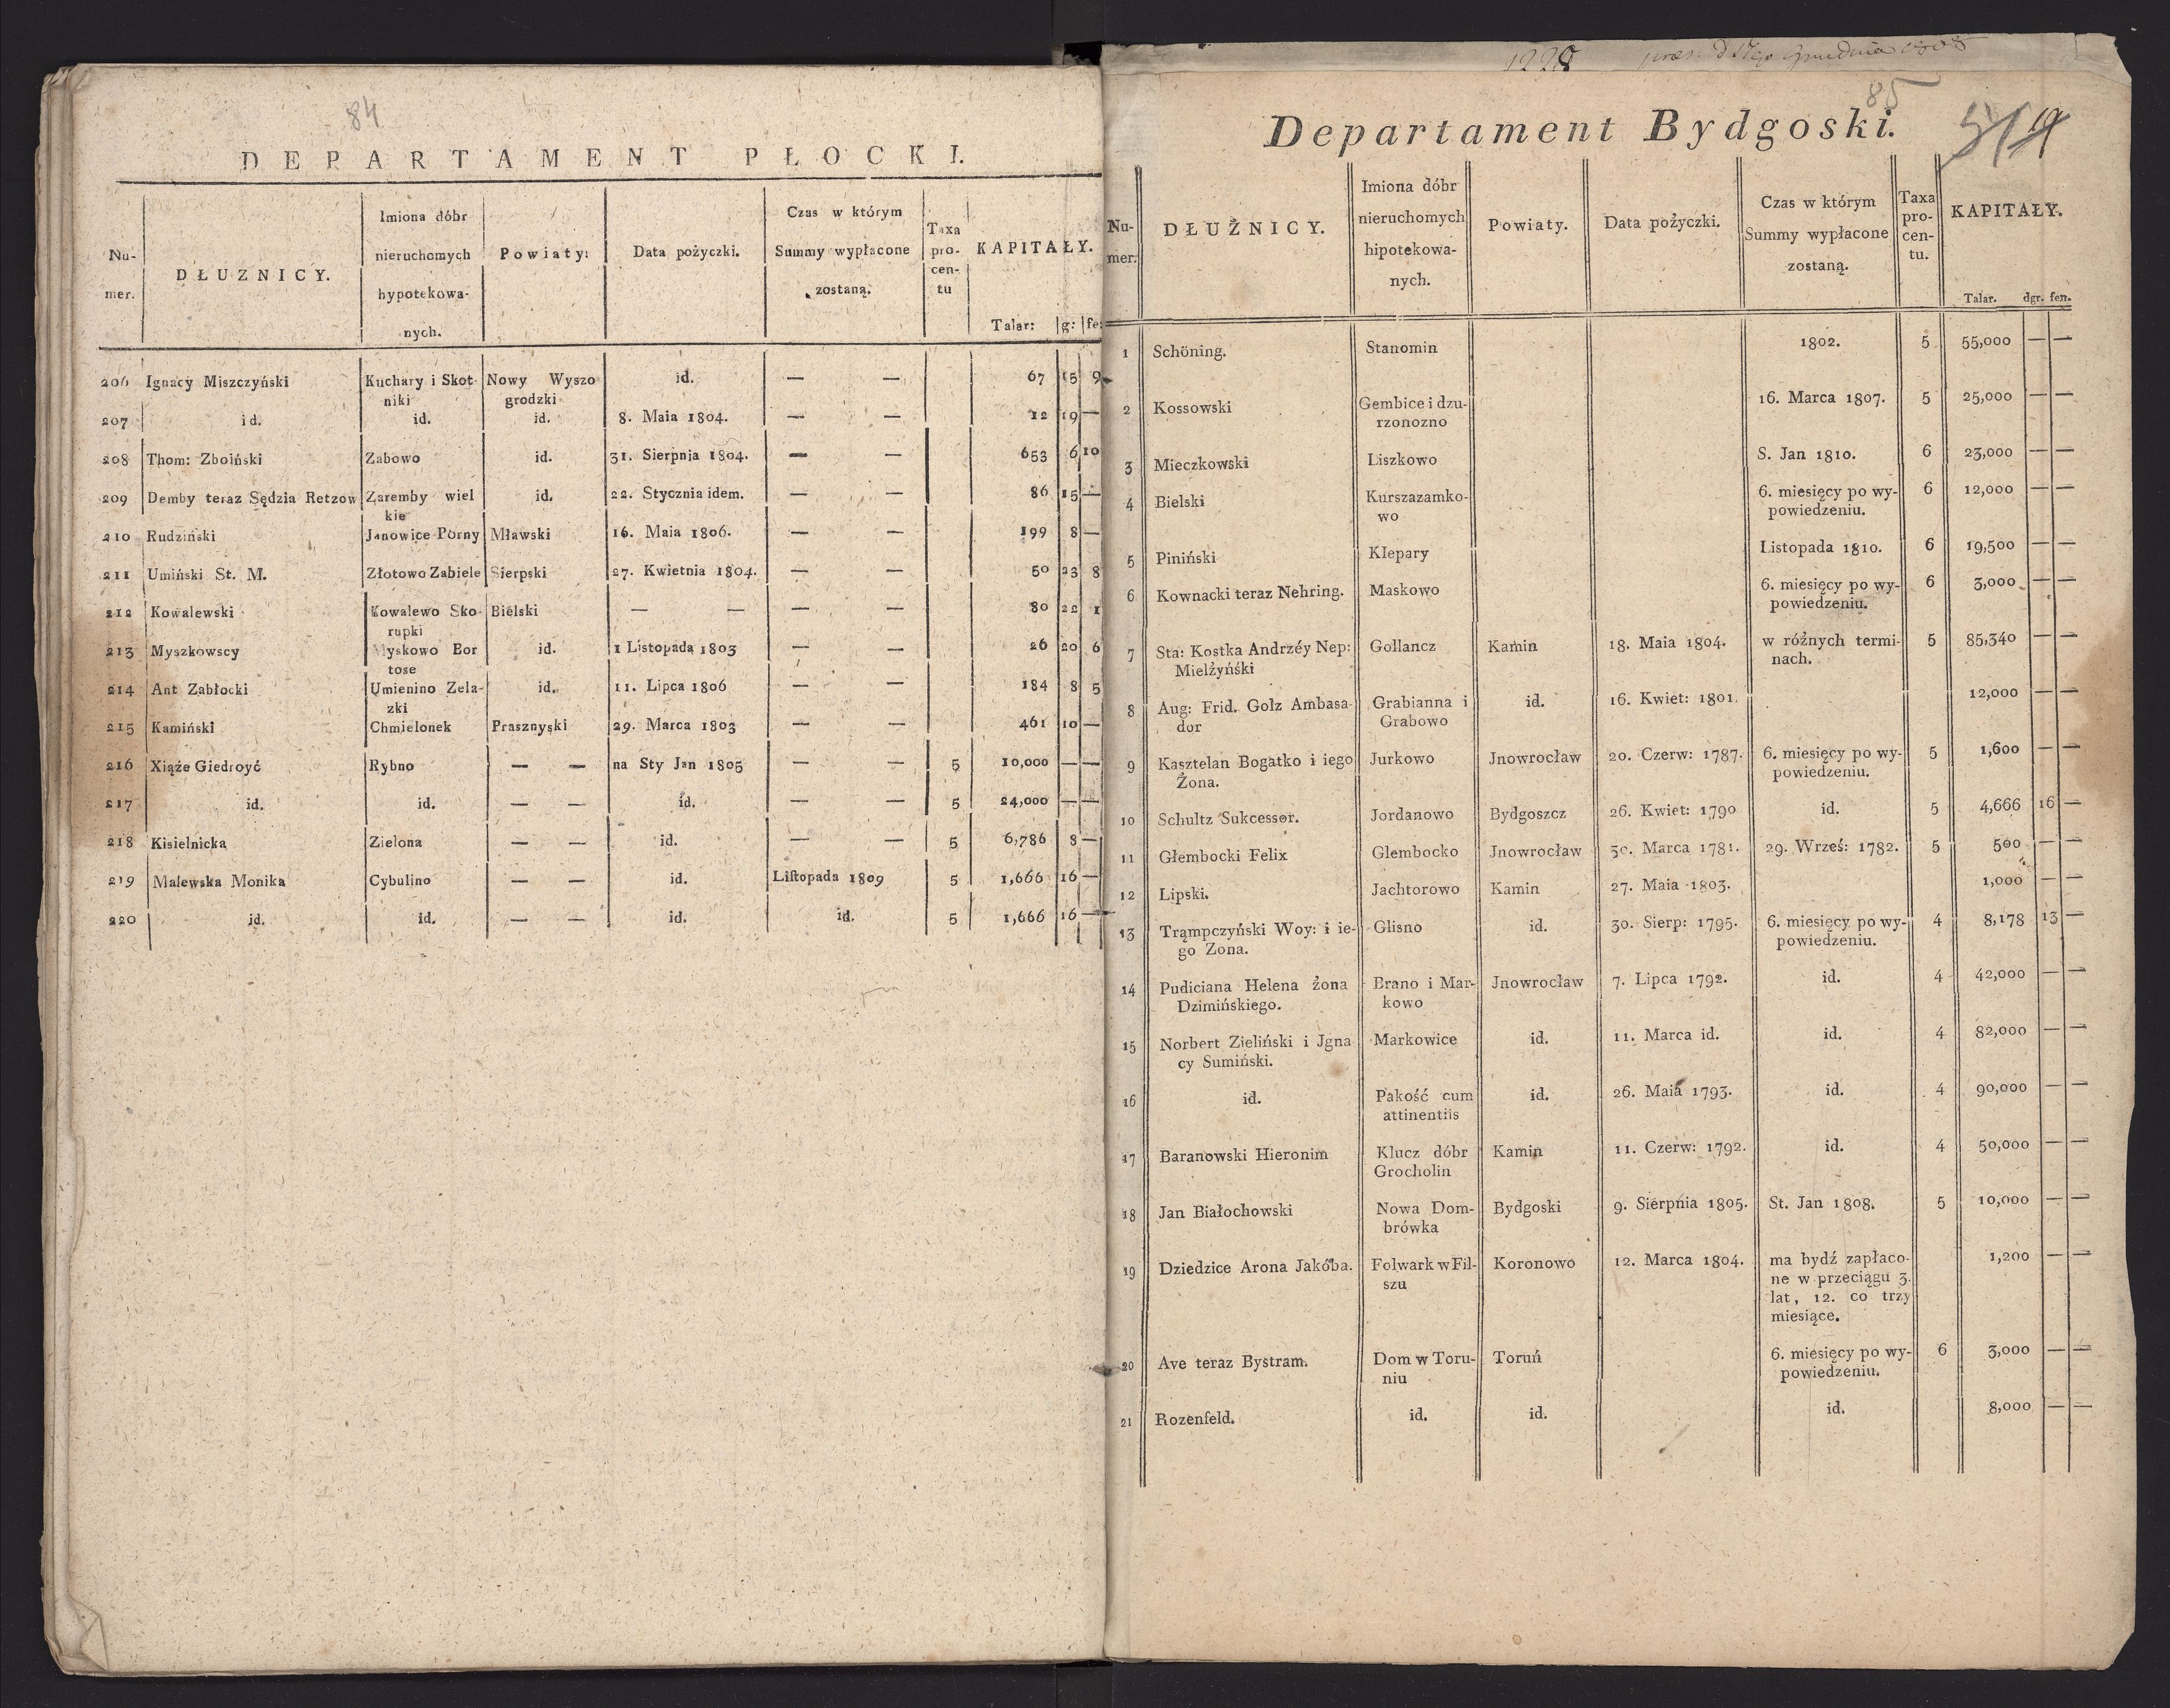 84
DEPARTAMENT PŁOCKI.
Nu-mer. | DŁUZNICY. | Imiona dóbr nieruchomych hypotekowa-nych. | Powiaty: | Data pożyczki. | Czas w którym Summy wypłacone zostaną. | Taxa pro-cen-tu | KAPITAŁY. Talar: | g: | fe:
206 | Ignacy Miszczyński | Kuchary i Skot-niki | Nowy Wyszo grodzki | id. | — — | | 67 | 15 | 9
207 | id. | id. | id. | 8. Maia 1804. | — — | | 12 | 19 | —
208 | Thom: Zboiński | Zabowo | id. | 31. Sierpnia 1804. | — — | | 653 | 6 | 10
209 | Demby teraz Sędzia Retzow | Zaremby wiel kie | id. | 22. Stycznia idem. | — — | | 86 | 15 | —
210 | Rudziński | Janowice Porny | Mławski | 16. Maia 1806. | — — | | 199 | 8 | —
211 | Umiński St. M. | Złotowo Zabiele | Sierpski | 27. Kwietnia 1804. | — — | | 50 | 23 | 8
212 | Kowalewski | Kowalewo Sko-rupki | Bielski | — — | — — | | 80 | 22 | 1
213 | Myszkowscy | Myskowo Bor tose | id. | 1 Listopada 1803 | — — | | 26 | 20 | 6
214 | Ant Zabłocki | Umienino Zela-zki | id. | 11. Lipca 1806 | — — | | 184 | 8 | 5
215 | Kamiński | Chmielonek | Prasznyski | 29. Marca 1803 | — — | | 461 | 10 | —
216 | Xiąże Giedroyć | Rybno | — — | na Sty Jan 1805 | — — | 5 | 10,000 | — | —
217 | id. | id. | — — | id. | — — | 5 | 24,000 | — | —
218 | Kisielnicka | Zielona | — — | id. | — — | 5 | 6,786 | 8 | —
219 | Malewska Monika | Cybulino | — — | id. | Listopada 1809 | 5 | 1,666 | 16 | —
220 | id. | id. | — — | id. | id. | 5 | 1,666 | 16 | —
1228 Grudnia
85
Departament Bydgoski.
Nu-mer. | DŁUŻNICY. | Imiona dóbr nieruchomych hipotekowa-nych. | Powiaty. | Data pożyczki. | Czas w którym Summy wypłacone zostaną. | Taxa pro-cen-tu. | KAPITAŁY. Talar. | dgr. | fen.
1 | Schöning. | Stanomin | | | 1802. | 5 | 55,000 | — | —
2 | Kossowski | Gembice i dzu-rzonozno | | | 16. Marca 1807. | 5 | 25,000 | — | —
3 | Mieczkowski | Liszkowo | | | S. Jan 1810. | 6 | 23,000 | — | —
4 | Bielski | Kurszazamko-wo | | | 6. miesięcy po wy-powiedzeniu. | 6 | 12,000 | — | —
5 | Piniński | Klepary | | | Listopada 1810. | 6 | 19,500 | — | —
6 | Kownacki teraz Nehring. | Maskowo | | | 6. miesięcy po wy-powiedzeniu. | 6 | 3,000 | — | —
7 | Sta: Kostka Andrzéy Nep: Mielżyński | Gollancz | Kamin | 18. Maia 1804. | w różnych termi-nach. | 5 | 85,340 | — | —
8 | Aug: Frid. Golz Ambasa-dor | Grabianna i Grabowo | id. | 16. Kwiet: 1801. | | | 12,000 | — | —
9 | Kasztelan Bogatko i iego Żona. | Jurkowo | Jnowrocław | 20. Czerw: 1787. | 6. miesięcy po wy-powiedzeniu. | 5 | 1,600 | — | —
10 | Schultz Sukcessor. | Jordanowo | Bydgoszcz | 26. Kwiet: 1790 | id. | 5 | 4,666 | 16 | —
11 | Głembocki Felix | Glembocko | Jnowrocław | 30. Marca 1781. | 29. Wrześ: 1782. | 5 | 500 | — | —
12 | Lipski. | Jachtorowo | Kamin | 27. Maia 1803. | | | 1,000 | — | —
13 | Trąmpczyński Woy: i ie-go Zona. | Glisno | id. | 30. Sierp: 1795. | 6. miesięcy po wy-powiedzeniu. | 4 | 8,178 | 13 | —
14 | Pudiciana Helena żona Dzimińskiego. | Brano i Mar-kowo | Jnowrocław | 7. Lipca 1792. | id. | 4 | 42,000 | — | —
15 | Norbert Zieliński i Jgna-cy Sumiński. | Markowice | id. | 11. Marca id. | id. | 4 | 82,000 | — | —
16 | id. | Pakość cum attinentiis | id. | 26. Maia 1793. | id. | 4 | 90,000 | — | —
17 | Baranowski Hieronim | Klucz dóbr Grocholin | Kamin | 11. Czerw: 1792. | id. | 4 | 50,000 | — | —
18 | Jan Białochowski | Nowa Dom-brówka | Bydgoski | 9. Sierpnia 1805. | St. Jan 1808. | 5 | 10,000 | — | —
19 | Dziedzice Arona Jakóba. | Folwark w Fil-szu | Koronowo | 12. Marca 1804. | ma bydź zapłaco-ne w przeciągu 3. lat, 12. co trzy miesiące. | | 1,200 | — | —
20 | Ave teraz Bystram. | Dom w Toru-niu | Toruń | | 6. miesięcy po wy-powiedzeniu. | 6 | 3,000 | — | —
21 | Rozenfeld. | id. | id. | | id. | | 8,000 | — | —